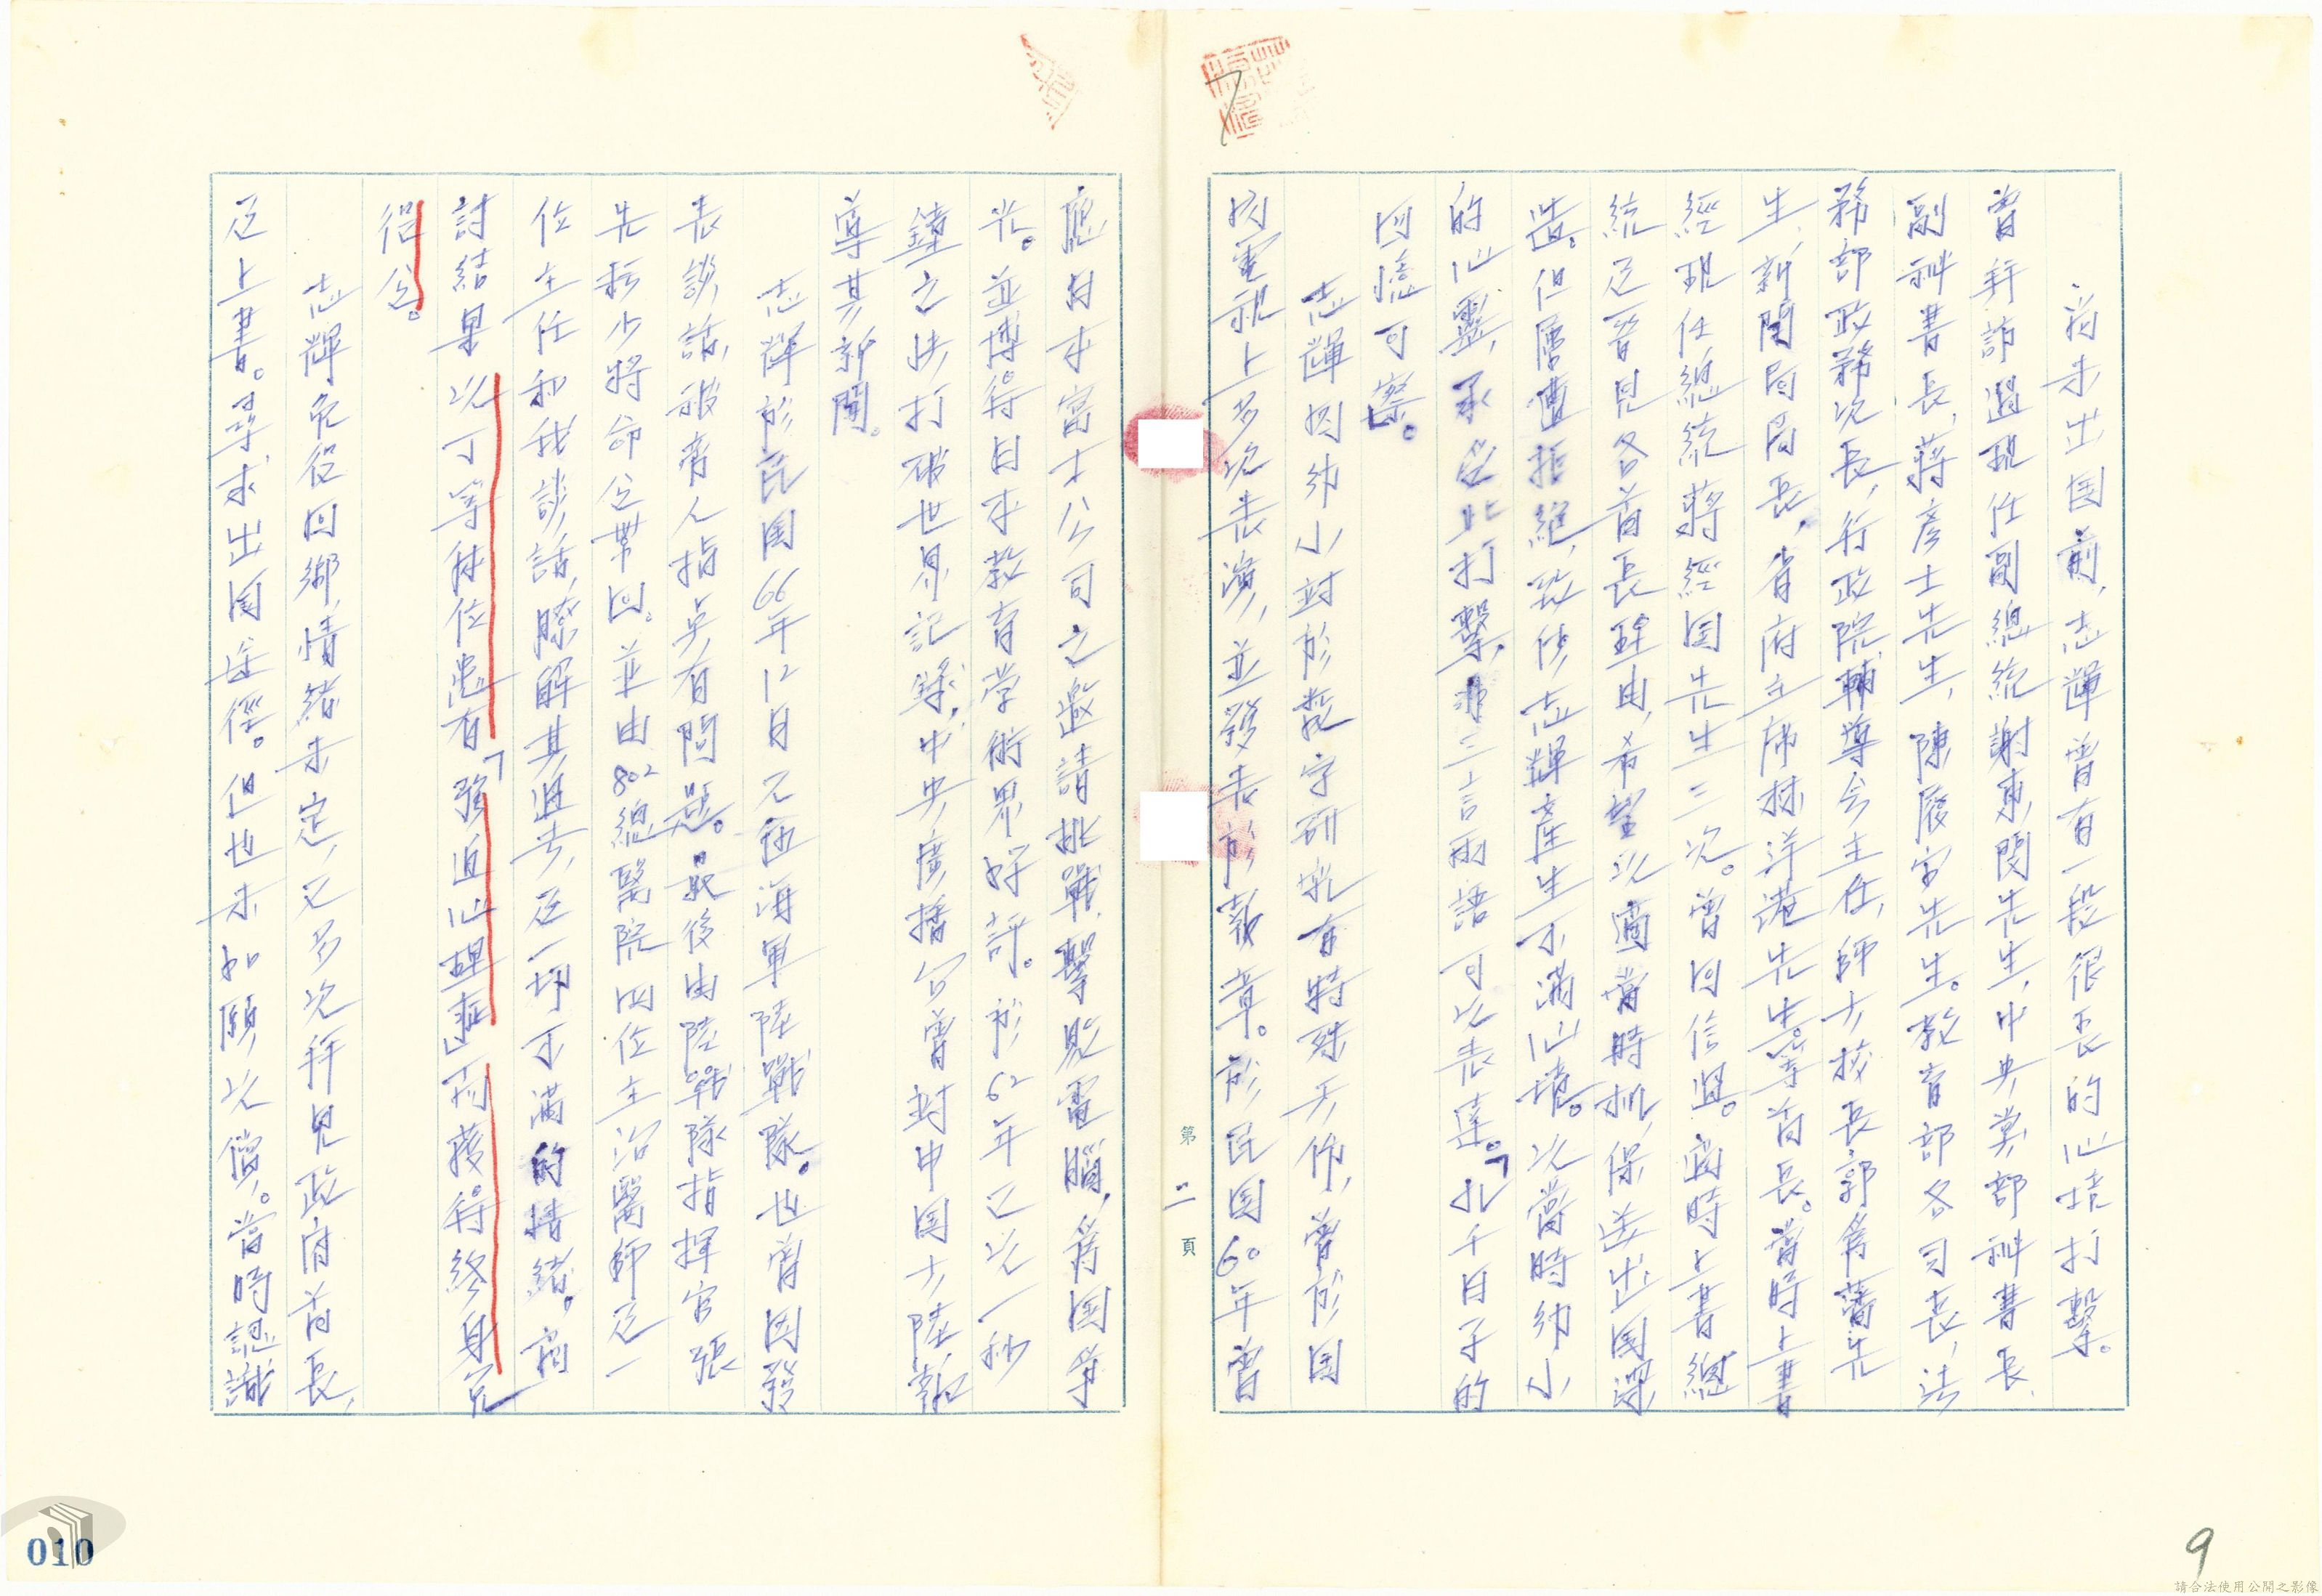 前未出国前,志輝曾有一段很長的心境打擊。
曾拜訪過現任副總統謝東閔先生,中央黨部秘書長,
副秘書長,蔣彥士先生,陳履安先生。教育部各司長,法
務部政務次長,行政院輔導会主任,師大校長郭為藩先
生,新聞局局長,省府主席林洋港先生等首長。當時上書
經現任總統蔣經国先生三次。曾回信過。當時上書總
統及晉見各首長理由,希望以適當時機,保送出国深
造。但屢遭拒絕,致使志輝產生不滿心境。以當時幼小
的心靈,承受此打擊,非三言兩語可以表達。「九千日子的
回憶可察」。
志輝因幼小対於數字研究有特殊天作,曾於国
內電視上多次表演,並發表於報章。於民国60年曾
應日本富士公司之邀請挑戰擊敗電腦,為国爭
光。並博得日本教育学術界好評。於62年已以一秒
鐘之快打破世界記錄,中央廣播台曾対中国大陸報
導其新聞。
志輝於民国66年12月入伍海軍陸戰隊。也曾因發
表談話,被旁人指吳有問題。最後由陸戰隊指揮官張
先耘少將命令帶回。並由802總醫院四位主治醫師及一
位主任和我談話,瞭解其過去,及一切不滿的情緒。檢
討結果以丁等体位患有「強迫心理症」而獲得終身免
役令。
志輝免役回鄉,情緒未定,又多次拜見政府首長,
及上書。尋求出国途徑。但也未如願以償。當時認識
第二頁
7
9
010
請合法使用公開之影像